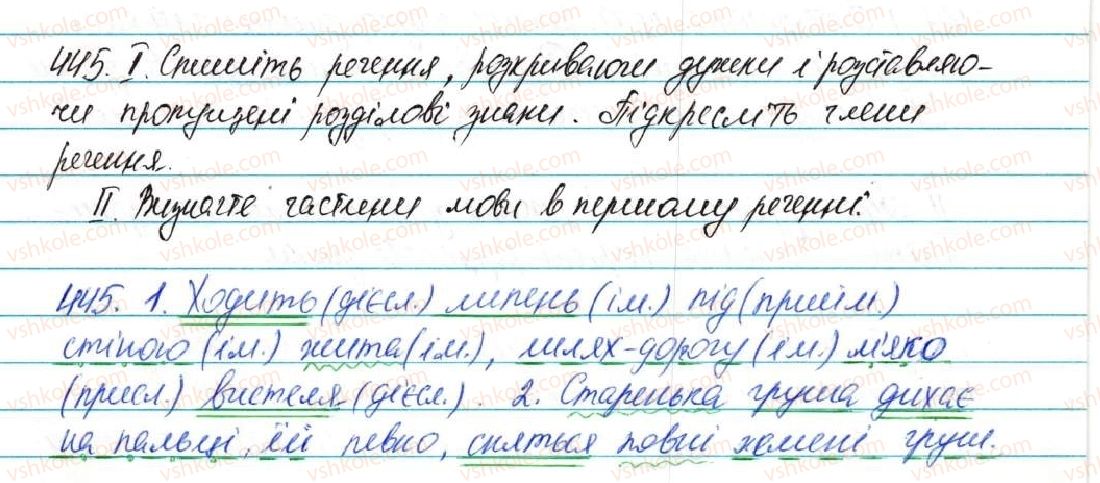 445. I. Спишіть речення, розкриваючи дужки і розставляю-
чи пропущені розділові знаки. Підкресліть члени
речення.
II. Визначте частини мови в першому реченні.
445. 1. Ходить (дієсл.) липень (ім.) під (прийм.)
стіною (ім.) жита (ім.), шлях-дорогу (ім.) м'яко
(присл.) вистеля (дієсл.). 2. Старенька груша дихає
на пальці, їй певно, сняться повні жмені груш.